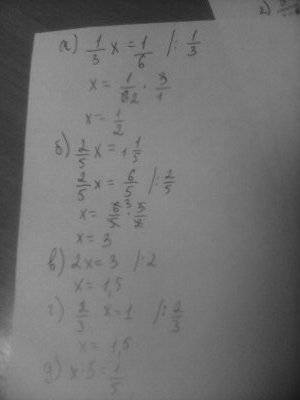 а) 1/3 x = 1/6 /: 1/3
x = 1/6 2 · 3/1
x = 1/2
б) 2/5 x = 1 1/5
2/5 x = 6/5 /: 2/5
x = 6/5 3 · 5/2
x = 3
в) 2x = 3 /: 2
x = 1,5
г) 2/3 x = 1 /: 2/3
x = 1,5
д) x · 5 = 1/5